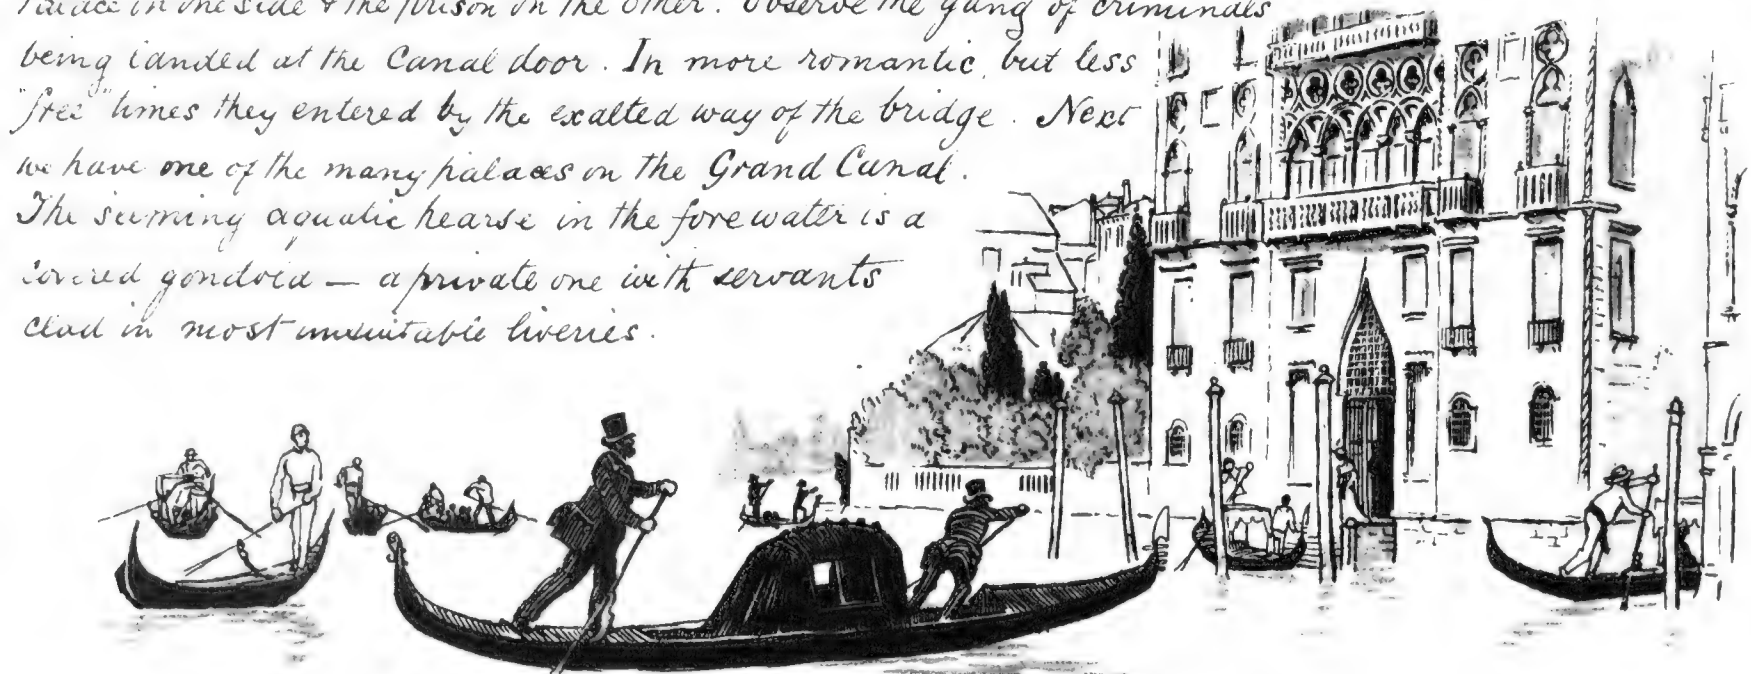 Palace on one side & the prison on the other. Observe the gang of criminals
being landed at the Canal door. In more romantic, but less
"free" times they entered by the exalted way of the bridge. Next
we have one of the many palaces on the Grand Canal.
The seeming aquatic hearse in the forewater is a
covered gondola — a private one with servants
clad in most unsuitable liveries.